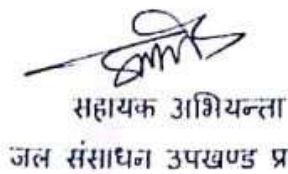 सहायक अभियन्ता
जल संसाधन उपखण्ड प्र